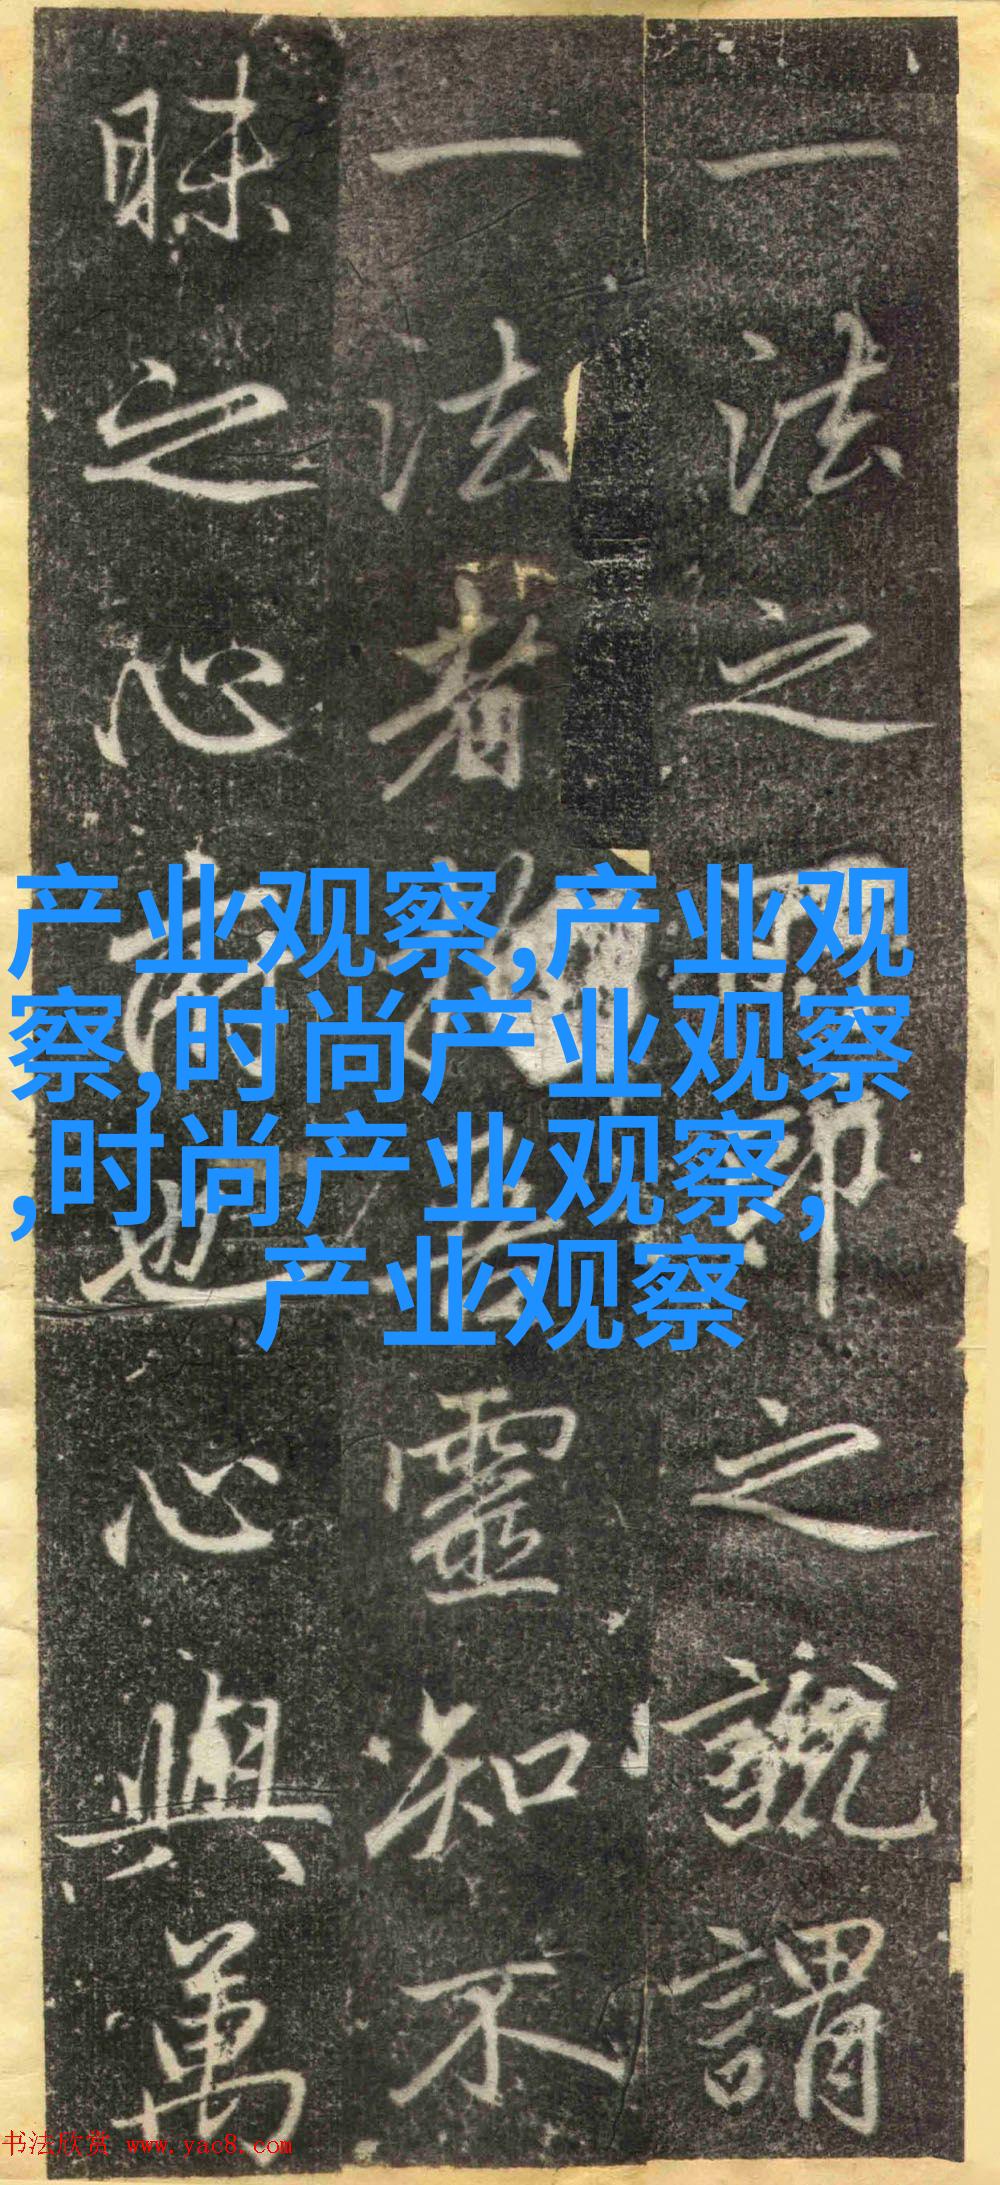 一法之印之號謂
一法者靈知不
昧之心也心與萬
产业观察,产业观
察,时尚产业观察
,时尚产业观察,
产业观察
书法欣赏 www.yac8.com